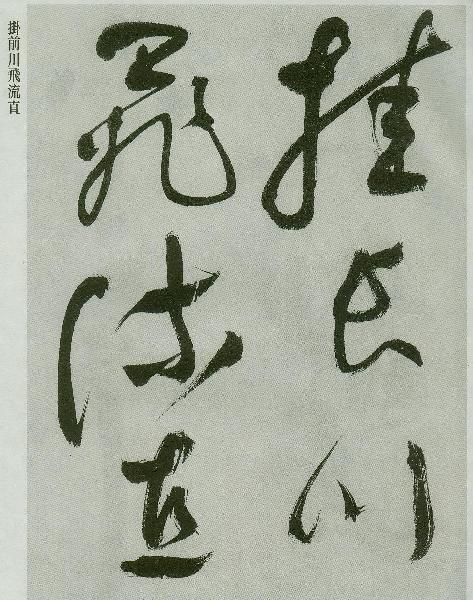 挂长川
飛流直
掛前川飛流直